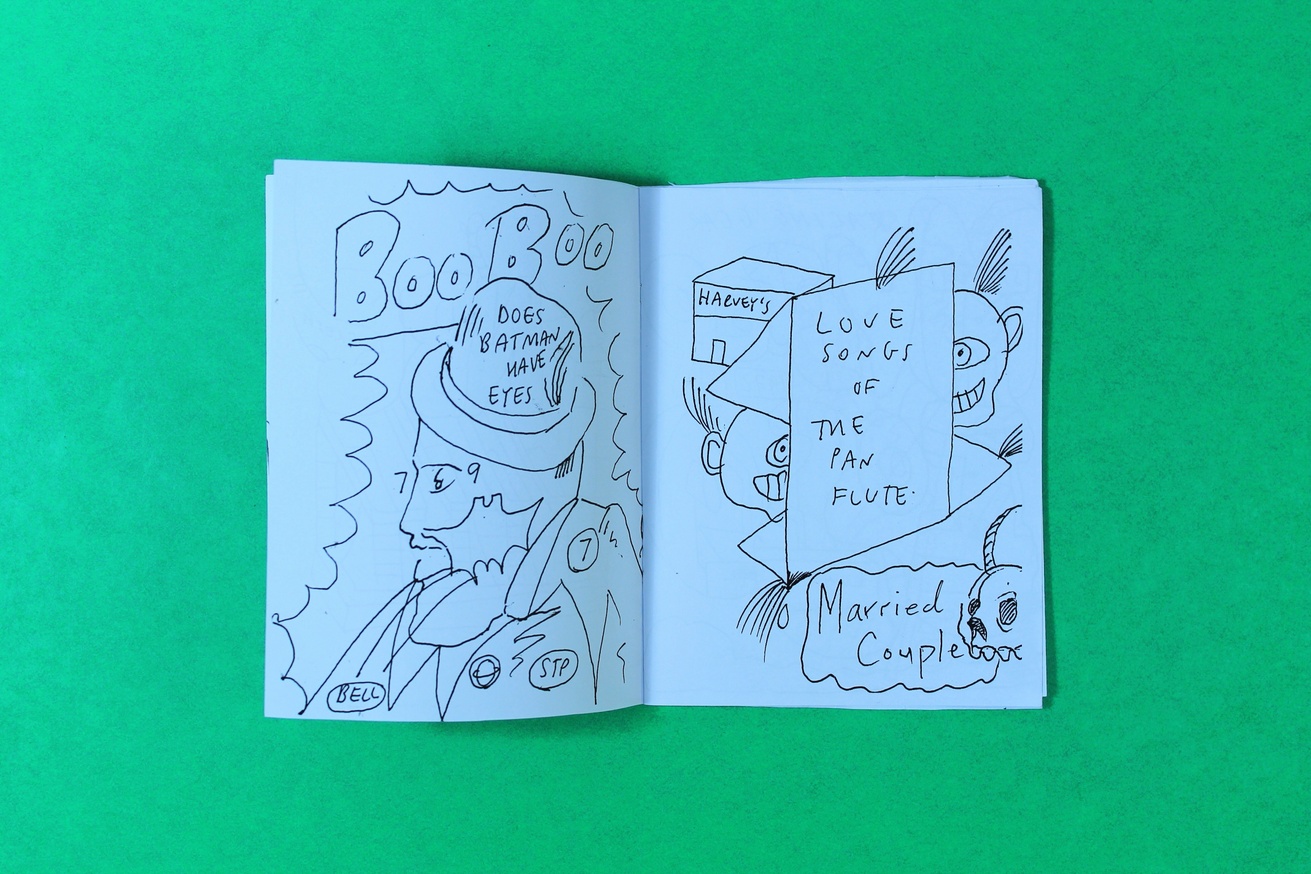 BOO BOO
DOES
BATMAN
HAVE
EYES
7 9
7
BELL
STP
HARVEY'S
LOVE
SONGS
OF
THE
PAN
FLUTE.
Married
Couple